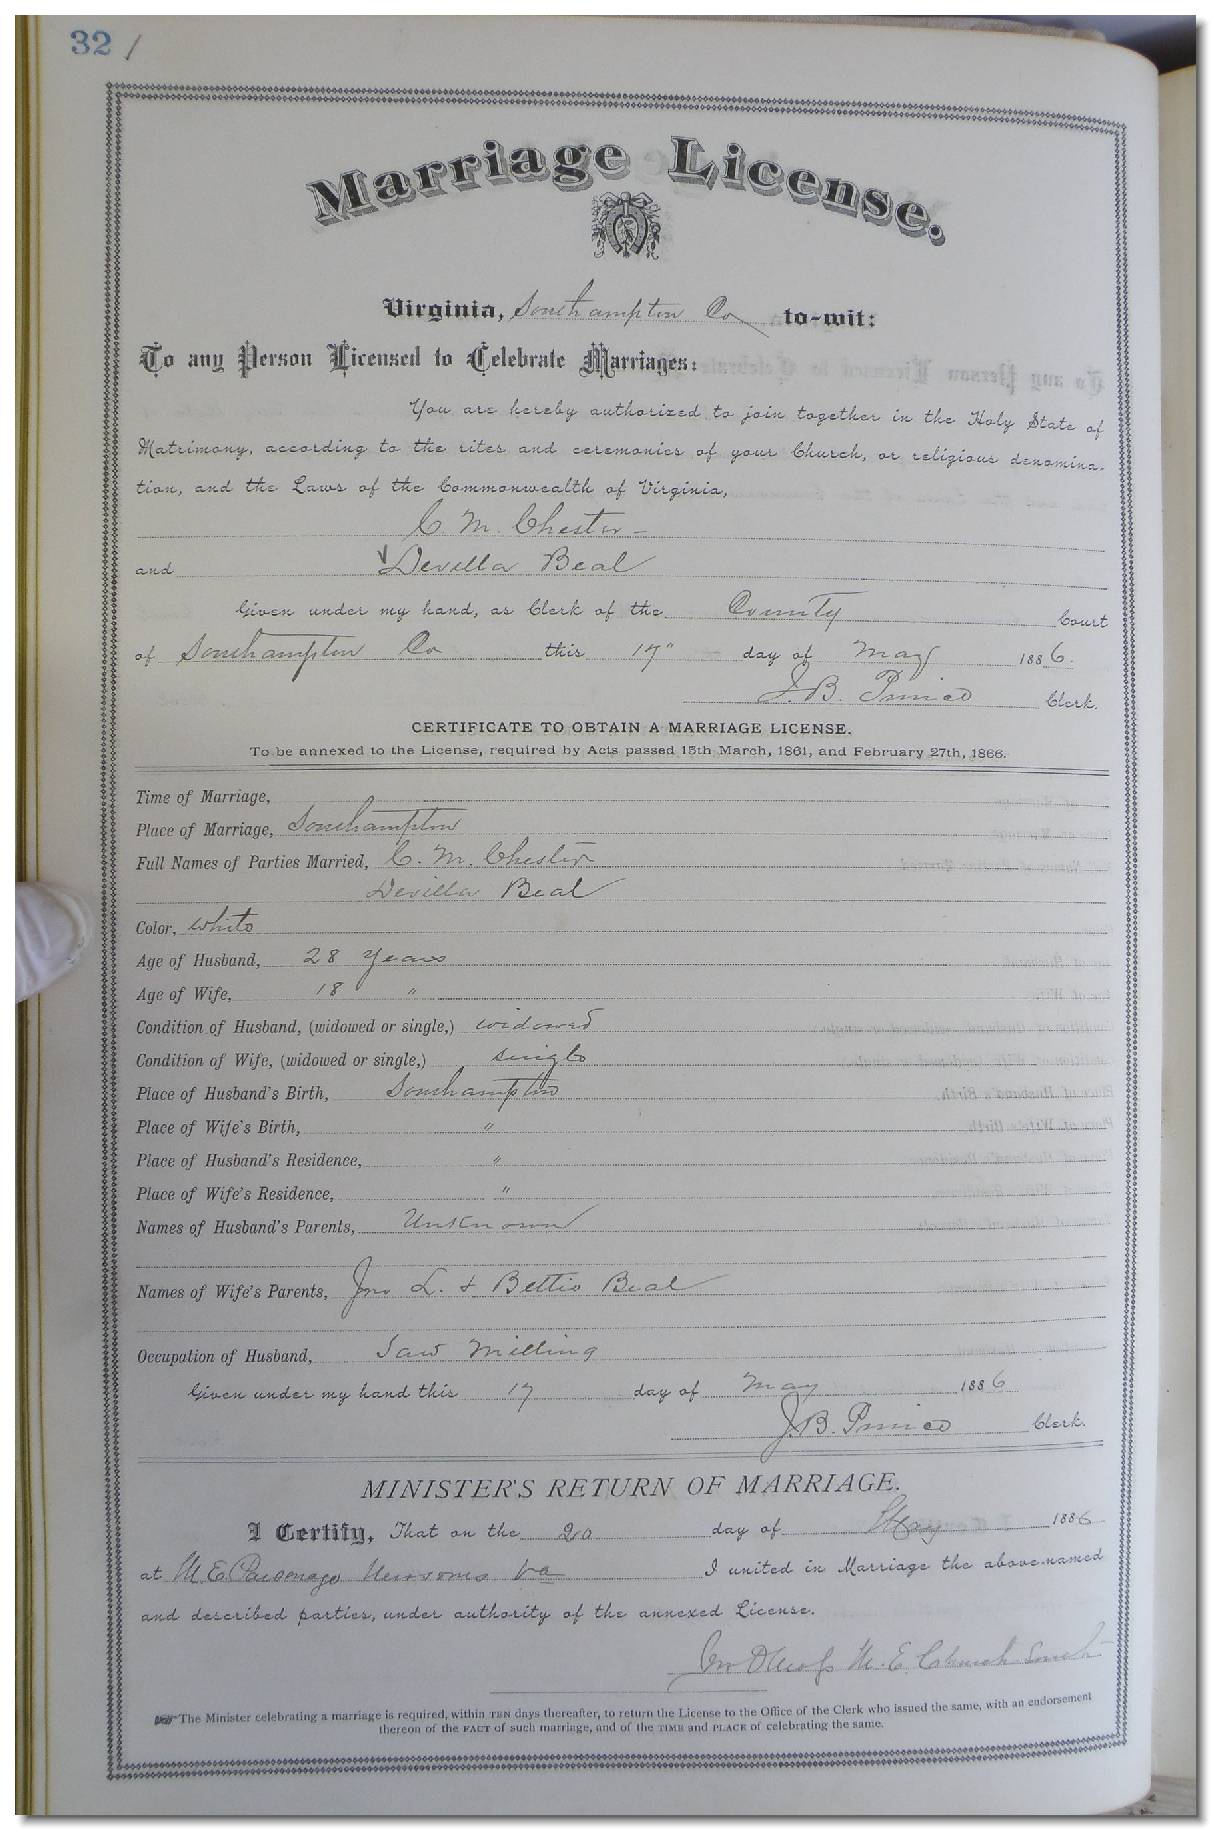 32 /
Marriage License.
Virginia, Southampton Co to-wit:
To any Person Licensed to Celebrate Marriages:
You are hereby authorized to join together in the Holy State of
Matrimony, according to the rites and ceremonies of your Church, or religious denomina-
tion, and the Laws of the Commonwealth of Virginia,
C. M. Chester
and Devilla Beal
Given under my hand, as Clerk of the County Court
of Southampton Co this 17" day of May 1886.
J. B. Prince Clerk.
CERTIFICATE TO OBTAIN A MARRIAGE LICENSE.
To be annexed to the License, required by Acts passed 15th March, 1861, and February 27th, 1866.
Time of Marriage,
Place of Marriage, Southampton
Full Names of Parties Married, C. M. Chester
Devilla Beal
Color, white
Age of Husband, 28 years
Age of Wife, 18 "
Condition of Husband, (widowed or single,) widowed
Condition of Wife, (widowed or single,) single
Place of Husband's Birth, Southampton
Place of Wife's Birth, "
Place of Husband's Residence, "
Place of Wife's Residence, "
Names of Husband's Parents, Unknown
Names of Wife's Parents, Jno L. & Bettie Beal
Occupation of Husband, Saw Milling
Given under my hand this 17 day of May 1886
J. B. Prince Clerk.
MINISTER'S RETURN OF MARRIAGE.
I Certify, That on the 20 day of May 1886
at M E Parsonage Newsoms Va I united in Marriage the above-named
and described parties, under authority of the annexed License.
M. E. Church South
The Minister celebrating a marriage is required, within TEN days thereafter, to return the License to the Office of the Clerk who issued the same, with an endorsement
thereon of the FACT of such marriage, and of the TIME and PLACE of celebrating the same.